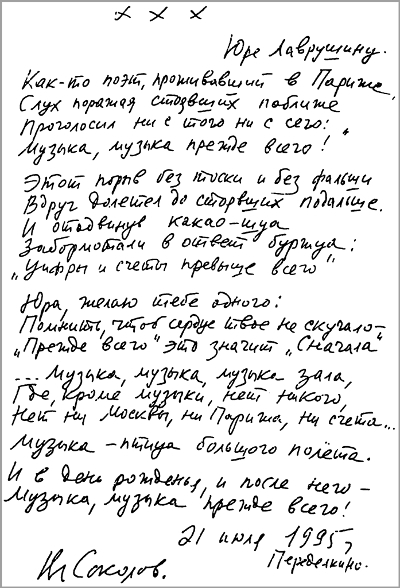 х х х
Юре Лаврушину.
Как-то поэт, проживавший в Париже,
Слух поражая стоявших поближе
Проголосил ни с того ни с сего:
Музыка, музыка прежде всего!"
Этот порыв без тоски и без фальши
Вдруг долетел до стоявших подальше.
И отодвинув какао-шуа
Забормотали в ответ буржуа:
„Цифры и счеты превыше всего"
Юра, желаю тебе одного:
Помнить, чтоб сердце твое не скучало –
„Прежде всего" это значит „Сначала"
... Музыка, музыка, музыка зала,
Где, кроме музыки, нет никого,
Нет ни Москвы, ни Парижа, ни счета...
Музыка – птица большого полёта.
И в день рожденья, и после него –
Музыка, музыка прежде всего!
21 июля 1995,
Переделкино.
Соколов.